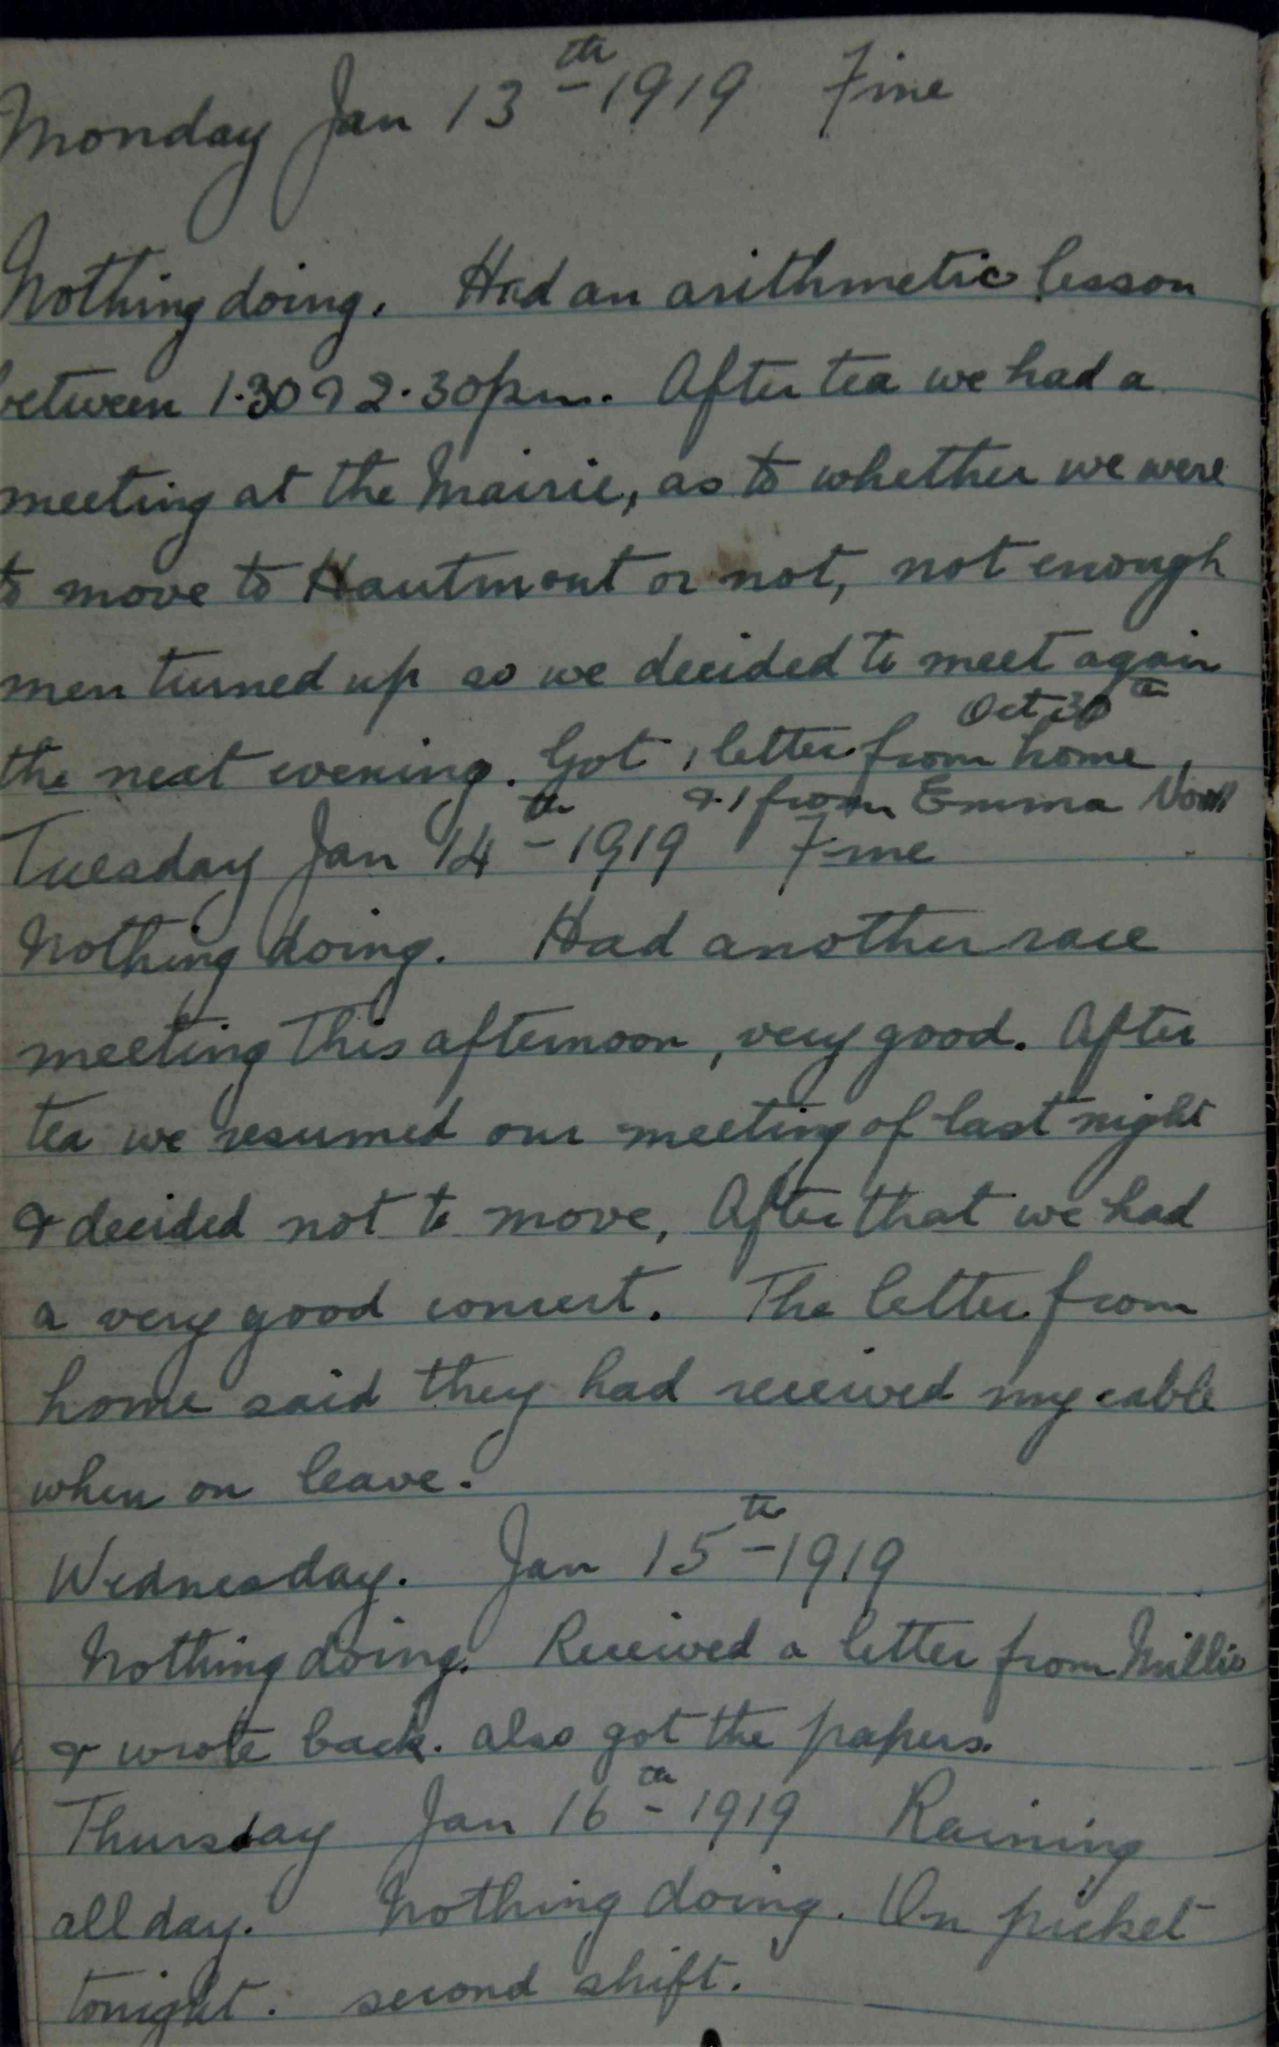 Monday Jan 13th 1919 Fine
Nothing doing. Had an arithmetic lesson
between 1.30 & 2.30pm. After tea we had a
meeting at the Mairie, as to whether we were
to move to Hautmont or not, not enough
men turned up so we decided to meet again
Oct 30th
the next evening. Got 1 letter from home
& 1 from Emma
Tuesday Jan 14th 1919 Fine
Nothing doing. Had another race
meeting this afternoon, very good. After
tea we resumed our meeting of last night
& decided not to move, After that we had
a very good consert. The letter from
home said they had received my cable
when on leave.
Wednesday. Jan 15th 1919
Nothing doing. Received a letter from Millie
& wrote back. also got the papers.
Thursday Jan 16th 1919 Raining
all day. Nothing doing. On picket
tonight. second shift.